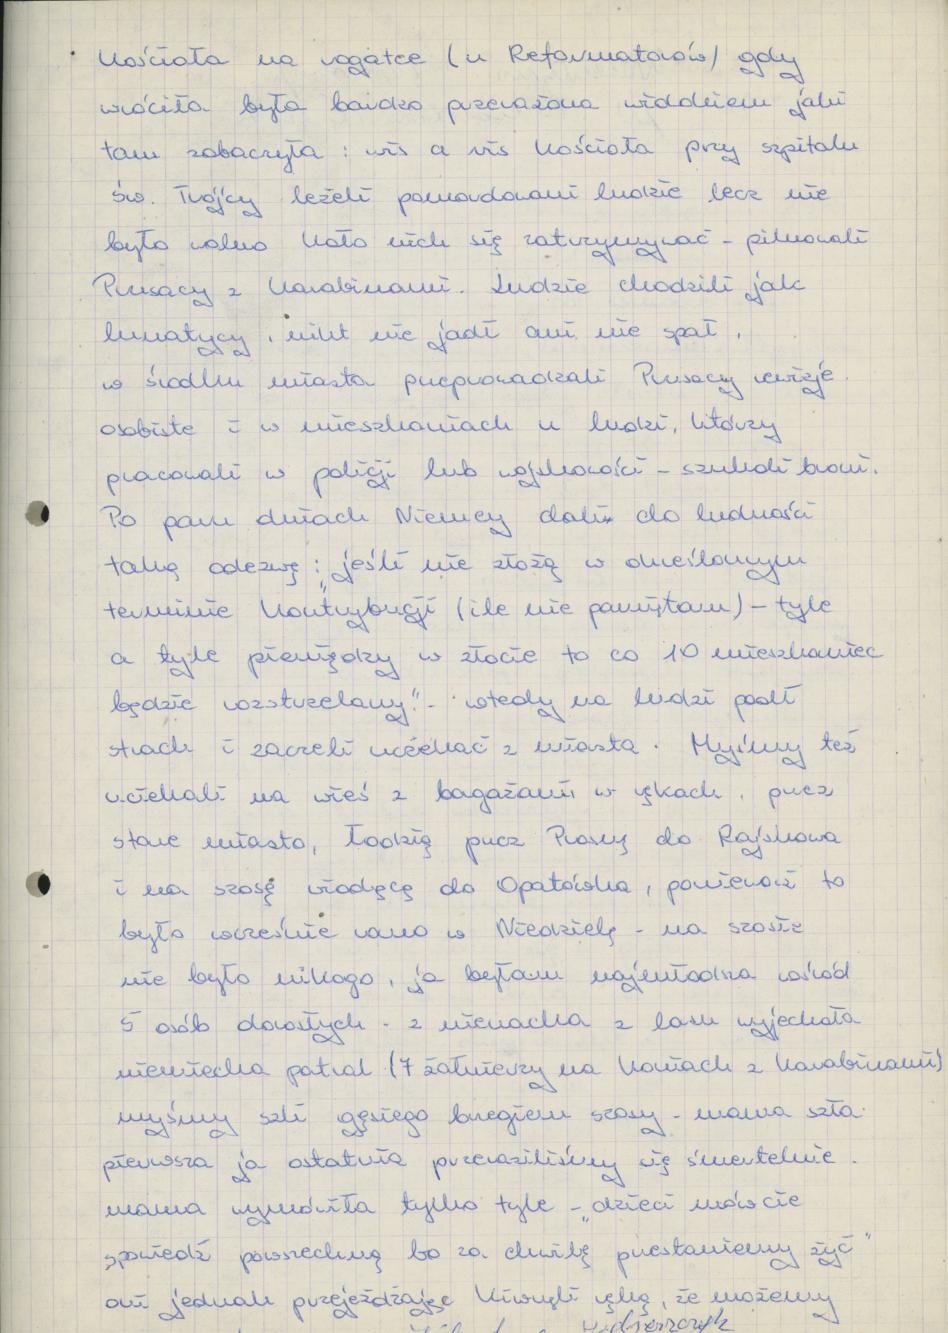 Kościoła na rogatce (u Reformatorów) gdy
wróciła była bardzo przerażona widokiem jaki
tam zobaczyła : wis a vis Kościoła przy szpitalu
św. Trójcy leżeli pomordowani ludzie lecz nie
było wolno koło nich się zatrzymywać - pilnowali
Prusacy z karabinami. Ludzie chodzili jak
lunatycy, nikt nie jadł ani nie spał,
w środku miasta przeprowadzali Prusacy rewizje
osobiste i w mieszkaniach u ludzi, którzy
pracowali w policji lub wojskowości - szukali broni.
Po paru dniach Niemcy dali do ludności
taką odezwę : „jeśli nie złożą w określonym
terminie Kontrybucji (ile nie pamiętam) - tyle
a tyle pieniędzy w złocie to co 10 mieszkaniec
będzie rozstrzelany" - wtedy na ludzi padł
strach i zaczeli uciekać z miasta. Myśmy też
uciekali na wieś z bagażami w rękach, przez
stare miasto, Łodzią przez Prosnę do Rajskowa
i na szosę wiodącą do Opatówka, ponieważ to
było wcześnie rano w Niedzielę - na szosie
nie było nikogo, ja byłam najmłodsza wśród
5 osób dorosłych - z nienacka z lasu wyjechała
niemiecka patrol (7 żołnierzy na koniach z karabinami)
myśmy szli gęsiego brzegiem szosy - mama szła
pierwsza ja ostatnia przeraziliśmy się śmiertelnie.
mama wymówiła tylko tyle - „dzieci mówcie
spowiedź powszechną bo za chwilę przestaniemy żyć"
oni jednak przejeżdżając kiwnęli ręką, że możemy